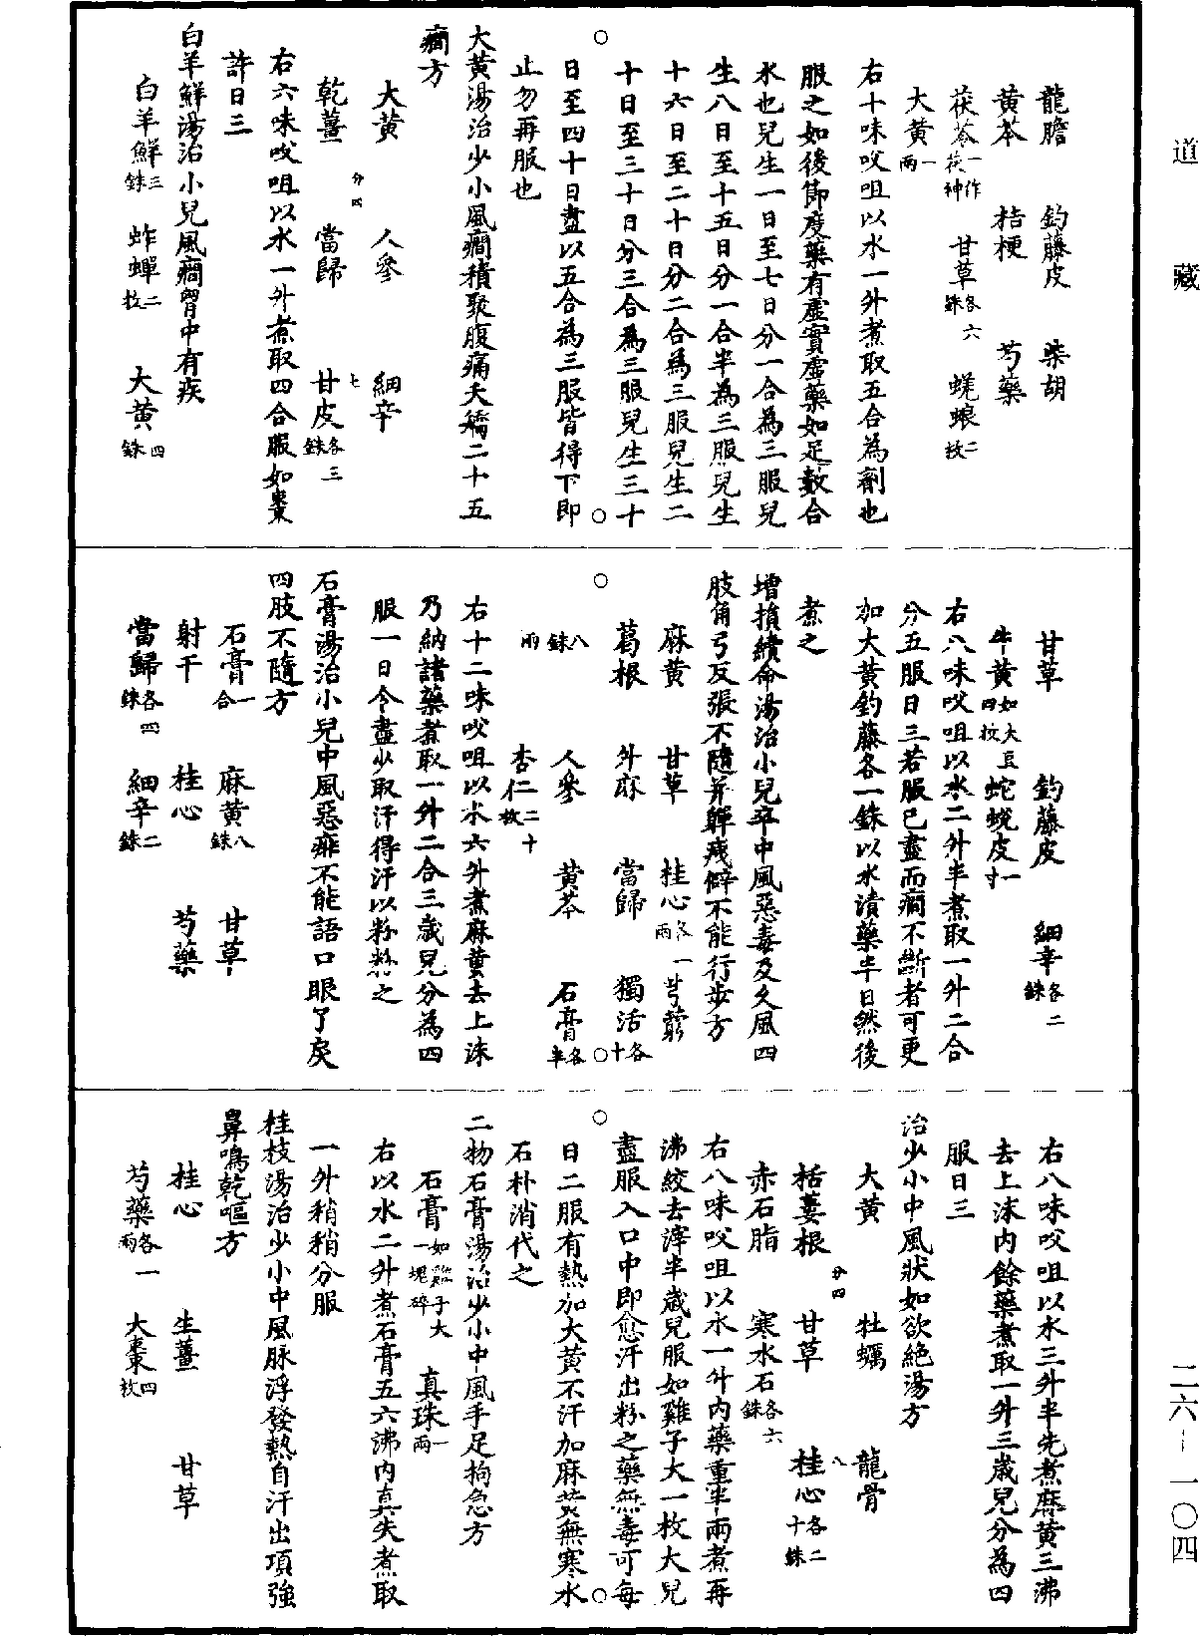 道藏
龍膽　釣藤皮　柴胡
黄芩　桔梗　芍藥
茯苓一作茯神　甘草各六銖　蜣蜋二枚
大黄一兩
右十味㕮咀以水一升煮取五合為劑也
服之如後節度藥有虛實虛藥如足數合
水也兒生一日至七日分一合為三服兒
生八日至十五日分一合半為三服兒生
十六日至二十日分二合為三服兒生二
十日至三十日分三合為三服兒生三十
日至四十日盡以五合為三服皆得下即
止勿再服也
大黄湯治少小風癎積聚腹痛夭矯二十五
癎方
大黄　人參　細辛
乾薑　當歸　甘皮各三銖
分四
七
右六味㕮咀以水一升煮取四合服如棗
許日三
白羊鮮湯治小兒風癎胷中有疾
白羊鮮三銖　蚱蟬二枚　大黄四銖
甘草　釣藤皮　細辛各二銖
牛黄如大豆四枚　蛇蛻皮一寸
右八味㕮咀以水二升半煮取一升二合
分五服日三若服已盡而癎不斷者可更
加大黄釣藤各一銖以水漬藥半日然後
煮之
增損續命湯治小兒卒中風惡毒及久風四
肢角弓反張不隨并嚲㿃僻不能行步方
麻黄　甘草　桂心各一兩　芎藭
葛根　升麻　當歸　獨活各十
八銖　人參　黄芩　石膏各半
兩　杏仁二十枚
右十二味㕮咀以水六升煮麻黄去上沫
乃納諸藥煮取一升二合三歲兒分為四
服一日令盡少取汗得汗以粉粉之
石膏湯治小兒中風惡痱不能語口眼了戾
四肢不隨方
石膏一合　麻黄八銖　甘草
射干　桂心　芍藥
當歸各四銖　細辛二銖
右八味㕮咀以水三升半先煮麻黄三沸
去上沫内餘藥煮取一升三歲兒分為四
服日三
治少小中風狀如欲絕湯方
大黄　牡蠣　龍骨
栝蔞根　甘草　桂心各二十銖
分四
八
赤石脂　寒水石各六銖
右八味㕮咀以水一升内藥重半兩煮再
沸絞去滓半歲兒服如雞子大一枚大兒
盡服入口中即愈汗出粉之藥無毒可每
日二服有熱加大黄不汗加麻黄無寒水
石朴消代之
二物石膏湯治少小中風手足拘急方
石膏如雞子大一塊碎　真珠一兩
右以水二升煮石膏五六沸内真失煮取
一升稍稍分服
桂枝湯治少小中風脉浮發熱自汗出項強
鼻鳴乾嘔方
桂心　生薑　甘草
芍藥各一兩　大棗四枚
二六—一〇四